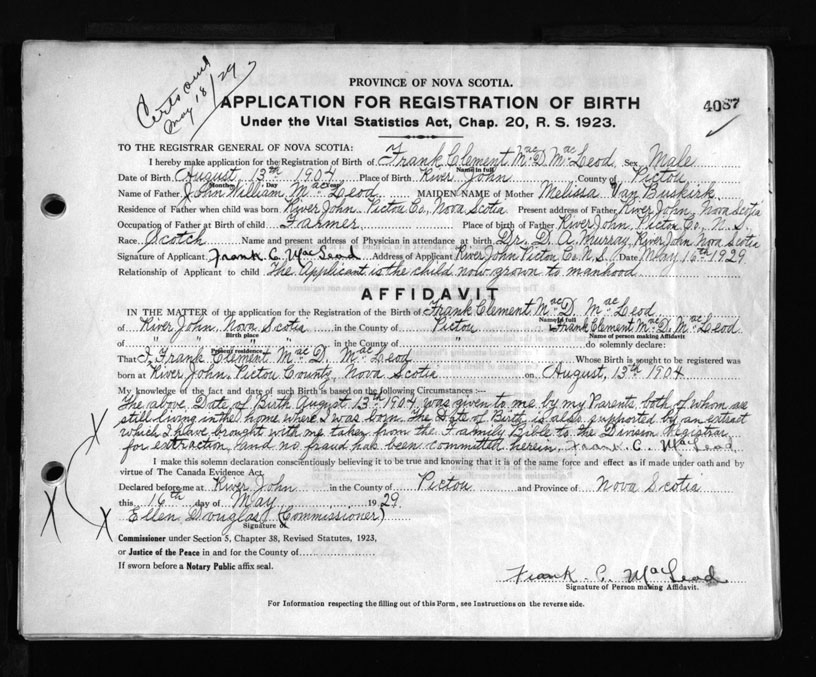 Certs out
May 18/29
PROVINCE OF NOVA SCOTIA.
4087
APPLICATION FOR REGISTRATION OF BIRTH
Under the Vital Statistics Act, Chap. 20, R. S. 1923.
TO THE REGISTRAR GENERAL OF NOVA SCOTIA:
I hereby make application for the Registration of Birth of Frank Clement MacD. MacLeod Sex Male
Name in full
Date of Birth August, 13th 1904 Place of Birth River John County of Pictou
Month Day Year
Name of Father John William MacLeod MAIDEN NAME of Mother Melissa Van Buskirk
Residence of Father when child was born River John Pictou Co., Nova Scotia Present address of Father River John, Nova Scotia
Occupation of Father at Birth of child Farmer Place of birth of Father River John, Pictou Co., N. S.
Race Scotch Name and present address of Physician in attendance at birth Dr. D. A. Murray, River John Nova Scotia
Signature of Applicant Frank C. MacLeod Address of Applicant River John Pictou Co. N. S. Date May 16th 1929
Relationship of Applicant to child The Applicant is the child now grown to manhood
AFFIDAVIT
IN THE MATTER of the application for the Registration of the Birth of Frank Clement MacD. MacLeod
Name in full
of River John, Nova Scotia in the County of Pictou Frank Clement MacD. MacLeod
Birth place Name of person making Affidavit
of " " " " in the County of " do solemnly declare:
Present residence
That I, Frank Clement MacD. MacLeod Whose Birth is sought to be registered was
born at River John, Pictou County, Nova Scotia on August, 13th 1904
My knowledge of the fact and date of such Birth is based on the following Circumstances :—
The above Date of Birth August 13th 1904, was given to me by my Parents, both of whom are
still living in the home where I was born. The Date of Birth is also supported by an extract
which I have brought with me taken from the Family Bible to the Division Registrar
for extraction and no fraud has been committed herein. Frank C. MacLeod
I make this solemn declaration conscientiously believing it to be true and knowing that it is of the same force and effect as if made under oath and by
virtue of The Canada Evidence Act.
Declared before me at River John in the County of Pictou and Province of Nova Scotia
this 16th day of May 1929
Ellen Douglas (Commissioner)
Signature of
Commissioner under Section 5, Chapter 38, Revised Statutes, 1923,
or Justice of the Peace in and for the County of
If sworn before a Notary Public affix seal.
Frank C. MacLeod
Signature of Person making Affidavit.
For Information respecting the filling out of this Form, see Instructions on the reverse side.